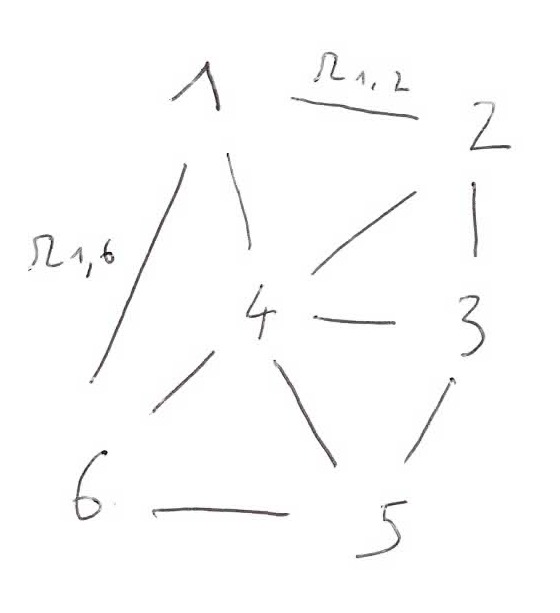 Ω1,2
1
2
Ω1,6
4
3
6
5